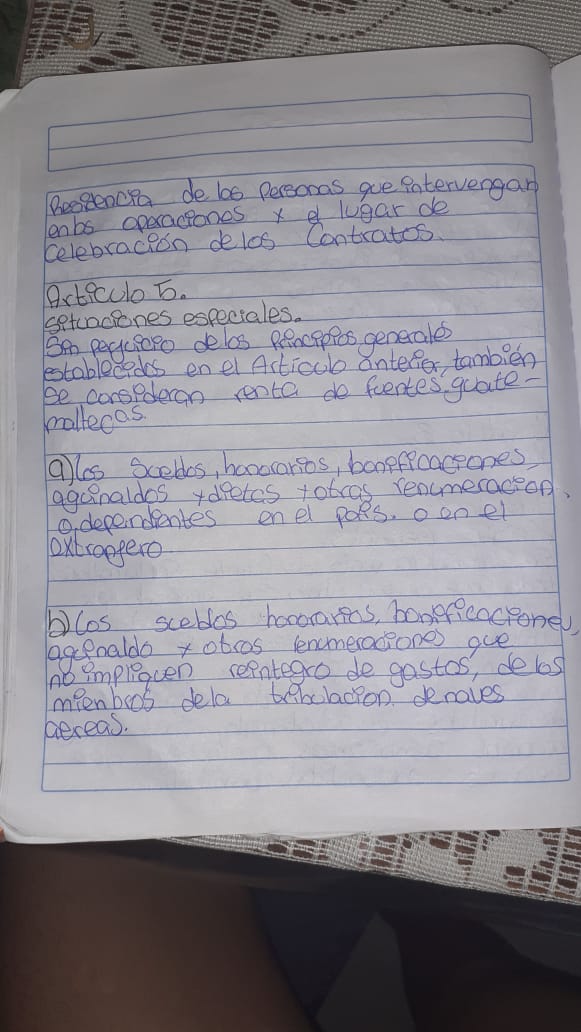 Residencia de los Personas que intervengan
en los operaciones y el lugar de
Celebración de los Contratos.
Articulo 5.
situaciones especiales.
Sin perjuicio de los Principios generales
establecidos en el Artículo anterior, también
se consideran renta de fuentes guate-
maltecas.
a) los Sueldos, honorarios, bonificaciones,
aguinaldos y dietas y otras renumeracion.
o dependientes en el país. o en el
extranjero
b) Los sueldos honorarios, bonificaciones,
aguinaldo y otros renumeraciones que
no impliquen reintegro de gastos, de los
mienbros de la tribulacion. de naves
aereas.